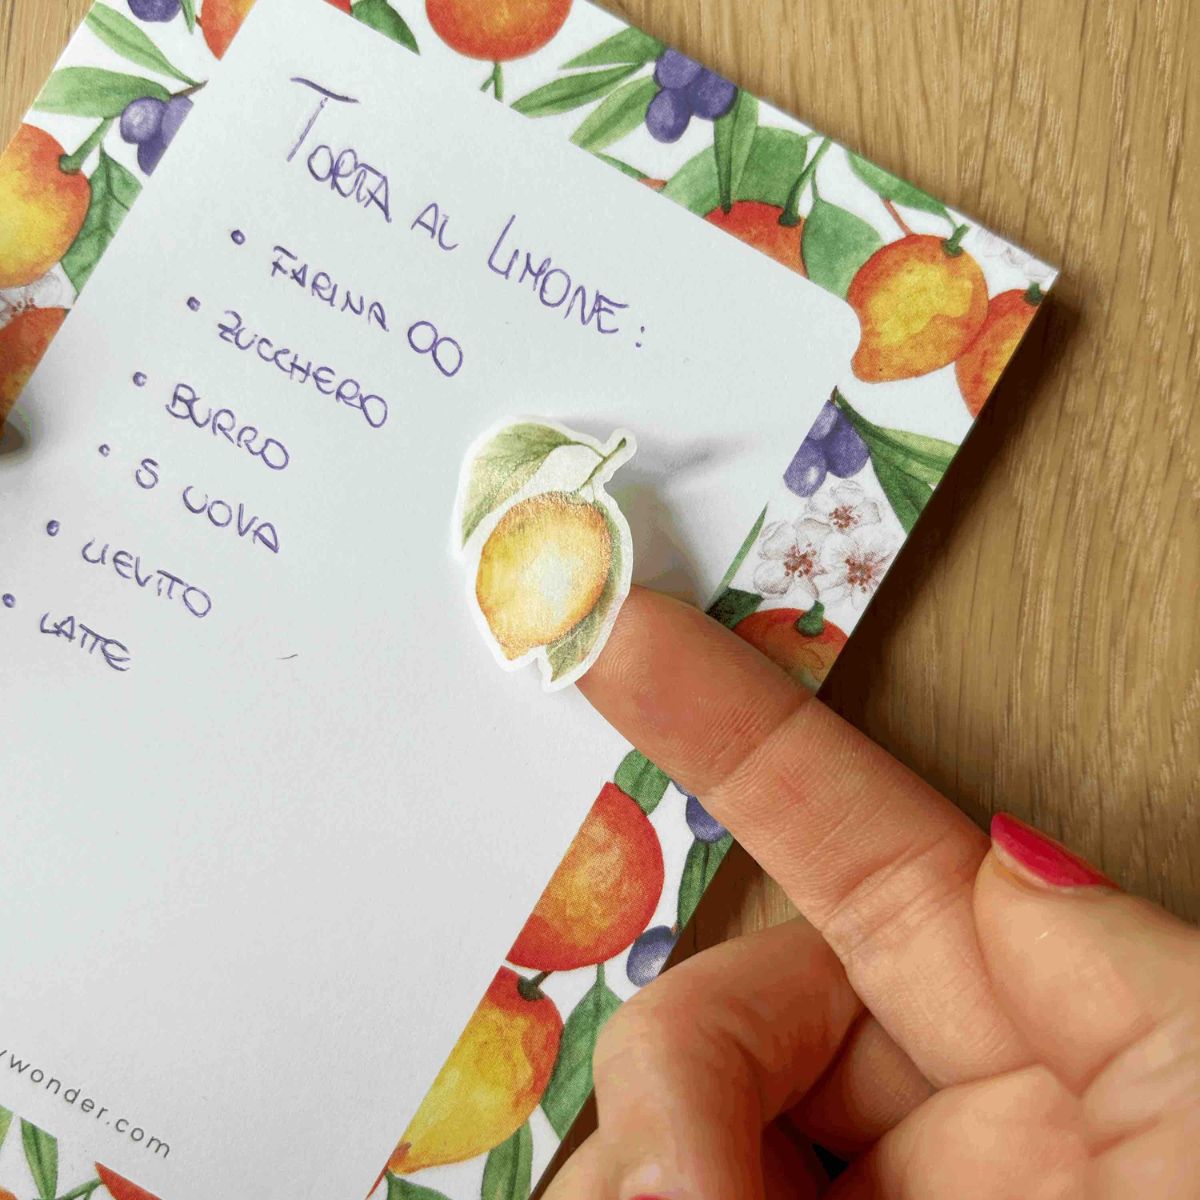 TORTA AL LIMONE:
• FARINA 00
• ZUCCHERO
• BURRO
• 5 UOVA
• LIEVITO
• LATTE
wonder.com